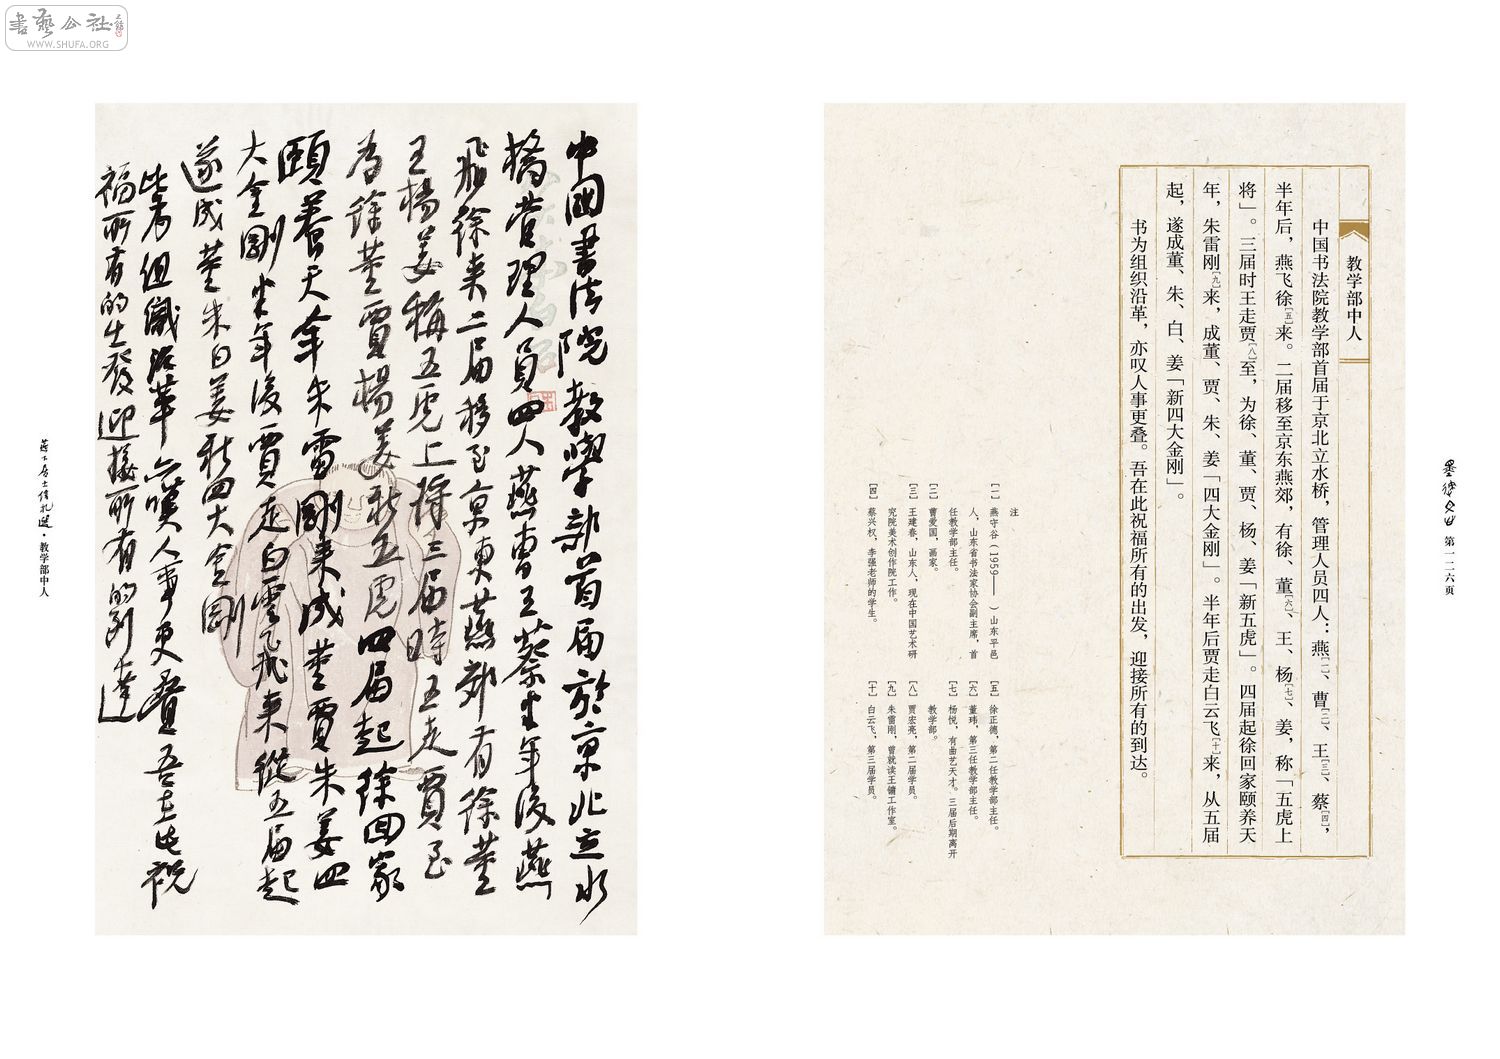 書藝公社
WWW.SHUFA.ORG
教学部中人
中国书法院教学部首届于京北立水桥，管理人员四人：燕[一]、曹[二]、王[三]、蔡[四]，
半年后，燕飞徐[五]来。二届移至京东燕郊，有徐、董[六]、王、杨[七]、姜，称「五虎上
将」。三届时王走贾[八]至，为徐、董、贾、杨、姜「新五虎」。四届起徐回家颐养天
年，朱雷刚[九]来，成董、贾、朱、姜「四大金刚」。半年后贾走白云飞[十]来，从五届
起，遂成董、朱、白、姜「新四大金刚」。
书为组织沿革，亦叹人事更叠。吾在此祝福所有的出发，迎接所有的到达。
注
[一] 燕守谷（1959—— ）山东平邑
人，山东省书法家协会副主席，首
任教学部主任。
[二] 曹爱国，画家。
[三] 王建春，山东人，现在中国艺术研
究院美术创作院工作。
[四] 蔡兴权，李强老师的学生。
[五] 徐正德，第二任教学部主任。
[六] 董玮，第三任教学部主任。
[七] 杨悦，有曲艺天才。三届后期离开
教学部。
[八] 贾宏亮，第二届学员。
[九] 朱雷刚，曾就读王镛工作室。
[十] 白云飞，第三届学员。
第一二六页
中國書法院教學部首届於京北立水
橋管理人員四人燕曹王蔡半年後燕
飛徐来二届移至京東燕郊有徐董
王楊姜稱五虎上将三届時王走賈至
為徐董賈楊姜新五虎四届起徐回家
頤養天年朱雷剛来成董賈朱姜四
大金剛半年後賈走白雲飛来從五届起
遂成董朱白姜新四大金剛
書為組織沿革亦嘆人事更叠吾在此祝
福所有的出發迎接所有的到達
·教学部中人